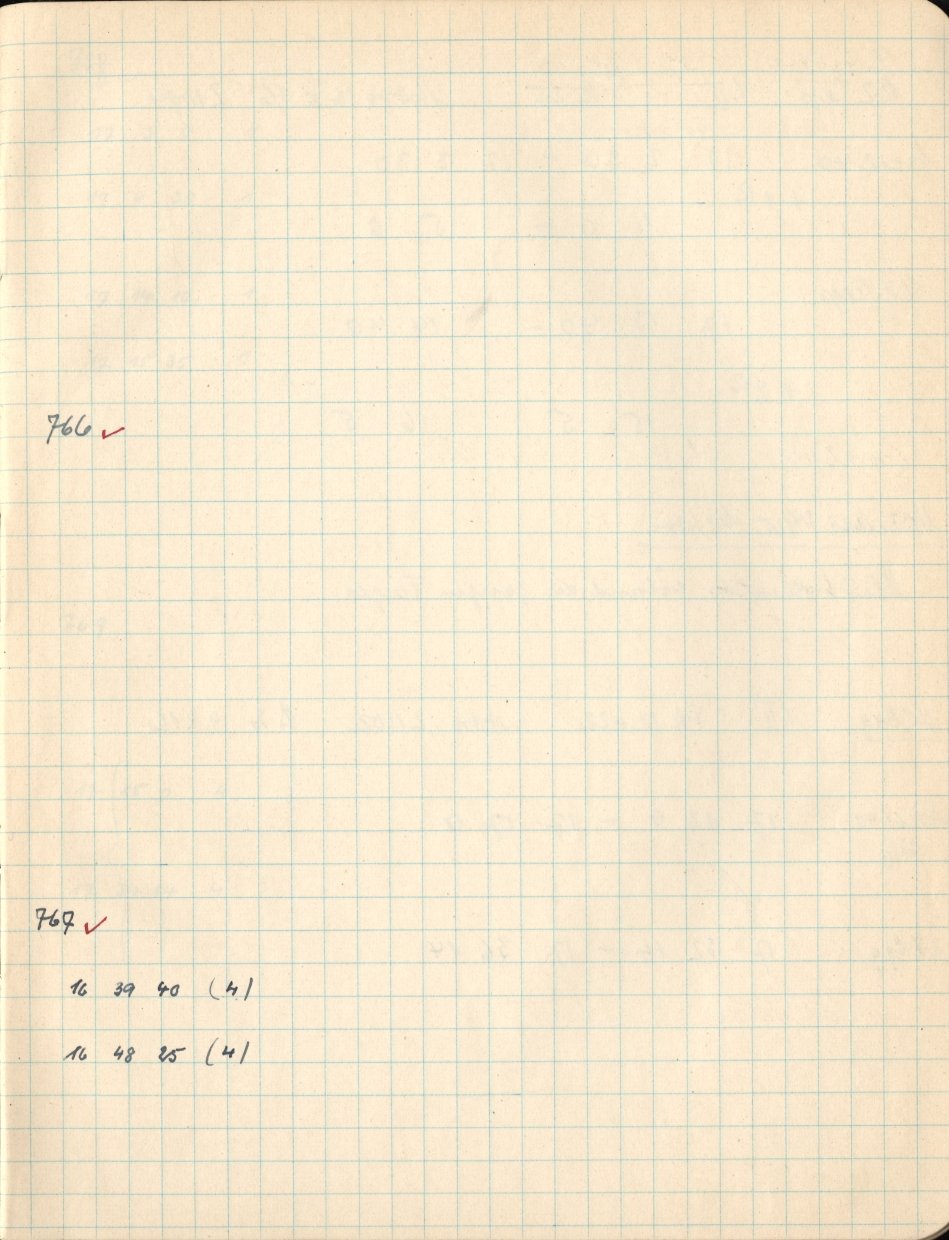 766 ✓
767 ✓
16 39 40 (4)
16 48 25 (4)